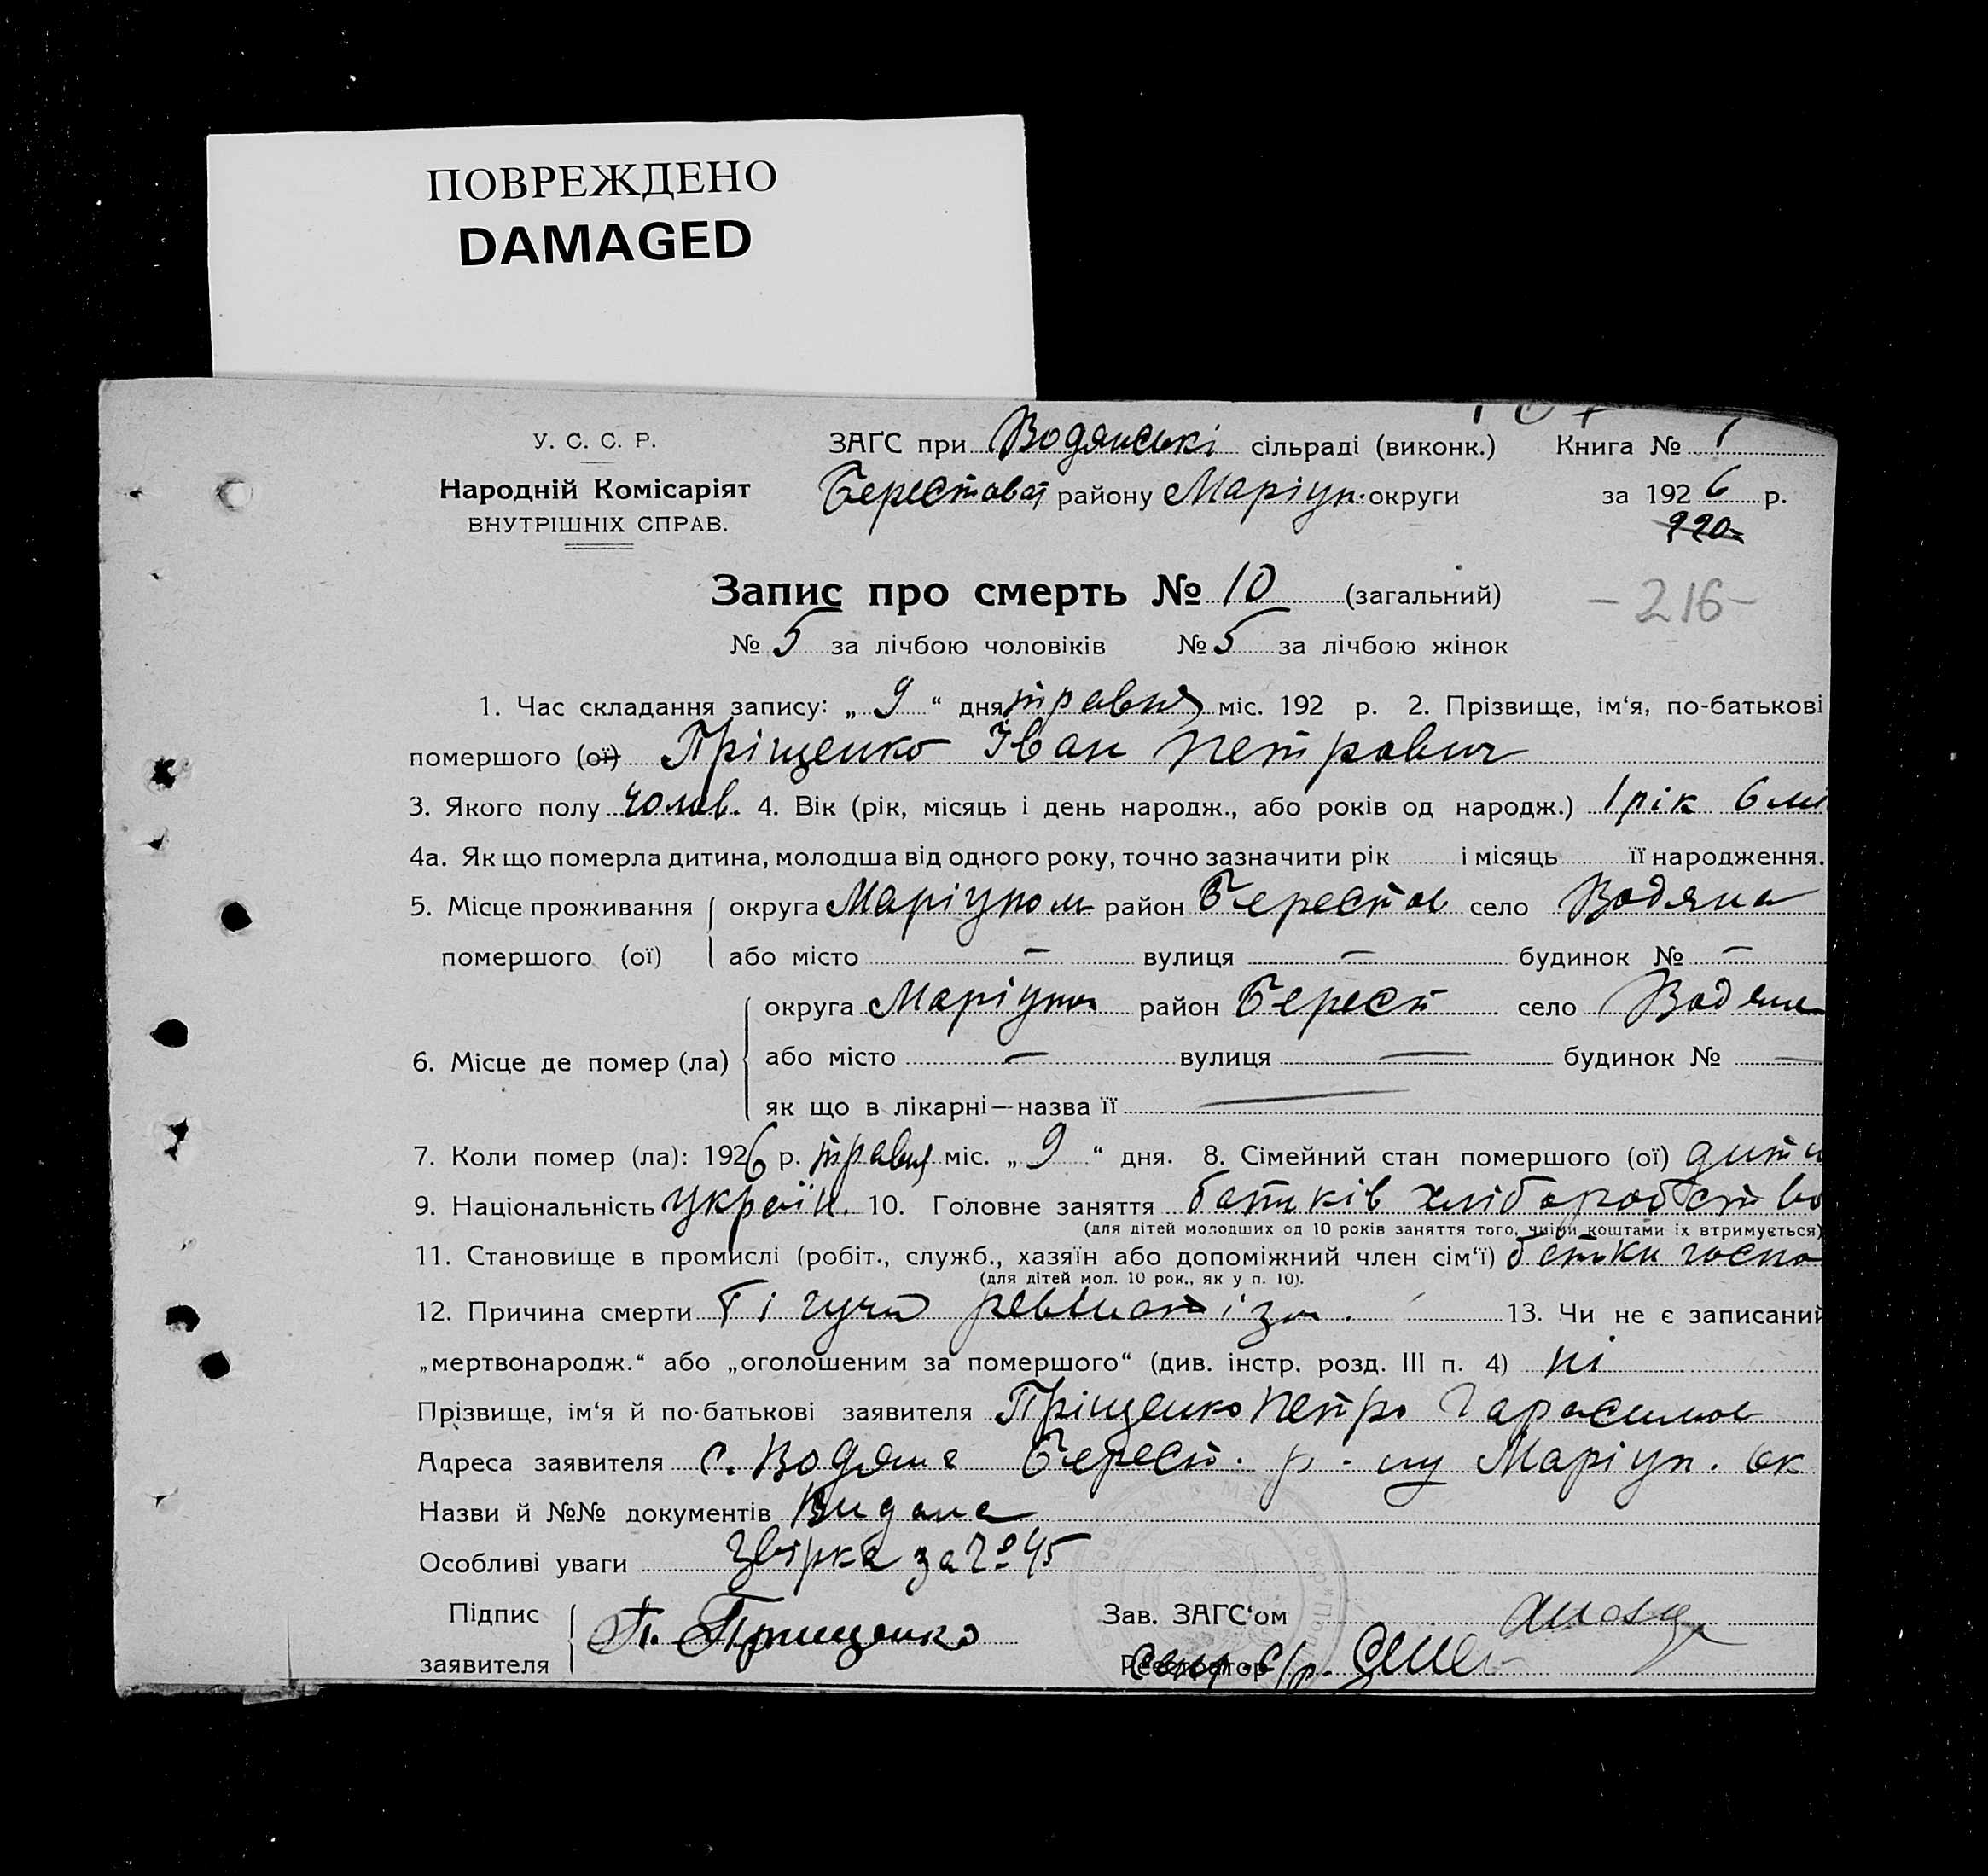 ПОВРЕЖДЕНО
DAMAGED
У. С. С. Р.
Народній Комісаріят
ВНУТРІШНІХ СПРАВ.
ЗАГС при Водянські сільраді (виконк.) Книга № 1
Берестоват району Маріуп. округи за 1926 р.
220
Запис про смерть № 10 (загальний)
- 216 -
№ 5 за лічбою чоловіків № 5 за лічбою жінок
1. Час складання запису: „ 9 “ дня травня міс. 192 р. 2. Прізвище, ім‘я, по-батькові
помершого (ої) Пріщенко Іван Петрович
3. Якого полу чолов. 4. Вік (рік, місяць і день народж., або років од народж.) 1 рік 6 мі
4а. Як що померла дитина, молодша від одного року, точно зазначити рік і місяць її народження.
5. Місце проживання округа Маріупол район Берестов село Водяна
помершого (ої) або місто — вулиця — будинок № —
округа Маріуп район Берест село Водяна
6. Місце де помер (ла) або місто — вулиця — будинок № —
як що в лікарні—назва її —
7. Коли помер (ла): 1926 р. травня міс. „ 9 “ дня. 8. Сімейний стан помершого (ої) дити
9. Національність Україн. 10. Головне заняття батьків хліборобство
(для дітей молодших од 10 років заняття того, чиїми коштами їх втримується)
11. Становище в промислі (робіт., служб., хазяїн або допоміжний член сім‘ї) батьки госпо
(для дітей мол. 10 рок., як у п. 10).
12. Причина смерти 13. Чи не є записаний
„мертвонародж.“ або „оголошеним за помершого“ (див. інстр. розд. III п. 4) ні
Прізвище, ім‘я й по-батькові заявителя Пріщенко Петро Гарасимов
Адреса заявителя с. Водяна Берест. р-ну Маріуп. ок
Назви й №№ документів Видана
Особливі уваги за № 45
Підпис
заявителя П. Прищенко
Зав. ЗАГС‘ом
Реєстратор